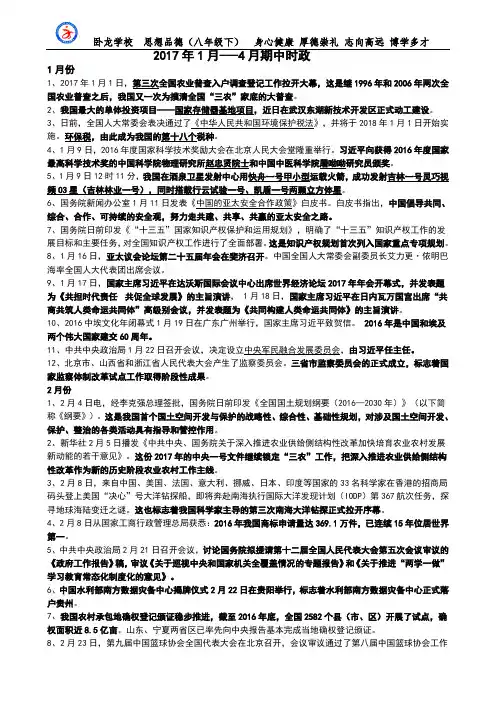 卧龙学校 思想品德（八年级下） 身心健康 厚德崇礼 志向高远 博学多才
2017年1月---4月期中时政
1月份
1、2017年1月1日，第三次全国农业普查入户调查登记工作拉开大幕，这是继1996年和2006年两次全
国农业普查之后，我国又一次为摸清全国“三农”家底的大普查。
2、我国最大的单体投资项目——国家存储器基地项目，近日在武汉东湖新技术开发区正式动工建设。
3、日前，全国人大常委会表决通过了《中华人民共和国环境保护税法》，并将于2018年1月1日开始实
施。环保税，由此成为我国的第十八个税种。
4、1月9日，2016年度国家科学技术奖励大会在北京人民大会堂隆重举行。习近平向获得2016年度国家
最高科学技术奖的中国科学院物理研究所赵忠贤院士和中国中医科学院屠呦呦研究员颁奖。
5、1月9日12时11分，我国在酒泉卫星发射中心用快舟一号甲小型运载火箭，成功发射吉林一号灵巧视
频03星（吉林林业一号），同时搭载行云试验一号、凯盾一号两颗立方体星。
6、国务院新闻办公室1月11日发表《中国的亚太安全合作政策》白皮书。白皮书指出，中国倡导共同、
综合、合作、可持续的安全观，努力走共建、共享、共赢的亚太安全之路。
7、国务院日前印发《“十三五”国家知识产权保护和运用规划》，明确了“十三五”知识产权工作的发
展目标和主要任务，对全国知识产权工作进行了全面部署。这是知识产权规划首次列入国家重点专项规划。
8、1月16日，亚太议会论坛第二十五届年会在斐济召开。中国全国人大常委会副委员长艾力更·依明巴
海率全国人大代表团出席会议。
9、1月17日，国家主席习近平在达沃斯国际会议中心出席世界经济论坛2017年年会开幕式，并发表题
为《共担时代责任 共促全球发展》的主旨演讲， 1月18日，国家主席习近平在日内瓦万国宫出席“共
商共筑人类命运共同体”高级别会议，并发表题为《共同构建人类命运共同体》的主旨演讲。
10、2016中埃文化年闭幕式1月19日在广东广州举行，国家主席习近平致贺信。 2016年是中国和埃及
两个伟大国家建交60周年。
11、中共中央政治局1月22日召开会议，决定设立中央军民融合发展委员会，由习近平任主任。
12、北京市、山西省和浙江省人民代表大会产生了监察委员会。三省市监察委员会的正式成立，标志着国
家监察体制改革试点工作取得阶段性成果。
2月份
1、2月4日电，经李克强总理签批，国务院日前印发《全国国土规划纲要（2016—2030年）》（以下简
称《纲要》），这是我国首个国土空间开发与保护的战略性、综合性、基础性规划，对涉及国土空间开发、
保护、整治的各类活动具有指导和管控作用。
2、新华社2月5日播发《中共中央、国务院关于深入推进农业供给侧结构性改革加快培育农业农村发展
新动能的若干意见》。这份2017年的中央一号文件继续锁定“三农”工作，把深入推进农业供给侧结构
性改革作为新的历史阶段农业农村工作主线。
3、2月8日，来自中国、美国、法国、意大利、挪威、日本、印度等国家的33名科学家在香港的招商局
码头登上美国“决心”号大洋钻探船，即将奔赴南海执行国际大洋发现计划（IODP）第367航次任务，探
寻地球海陆变迁之谜。这也标志着我国科学家主导的第三次南海大洋钻探正式拉开序幕。
4、2月8日从国家工商行政管理总局获悉：2016年我国商标申请量达369.1万件，已连续15年位居世界
第一。
5、中共中央政治局2月21日召开会议，讨论国务院拟提请第十二届全国人民代表大会第五次会议审议的
《政府工作报告》稿，审议《关于巡视中央和国家机关全覆盖情况的专题报告》和《关于推进“两学一做”
学习教育常态化制度化的意见》。
6、中国水利部南方数据灾备中心揭牌仪式2月22日在贵阳举行，标志着水利部南方数据灾备中心正式落
户贵州。
7、我国农村承包地确权登记颁证稳步推进，截至2016年底，全国2582个县（市、区）开展了试点，确
权面积近8.5亿亩。山东、宁夏两省区已率先向中央报告基本完成当地确权登记颁证。
8、2月23日，第九届中国篮球协会全国代表大会在北京召开，会议审议通过了第八届中国篮球协会工作